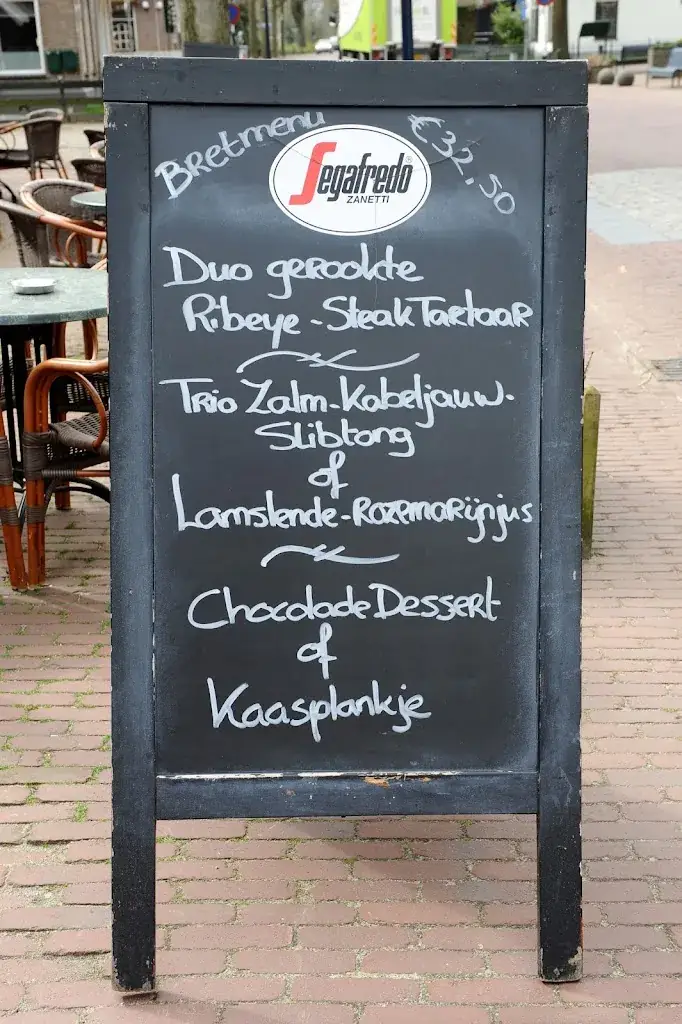 Bretmenu
€32,50
Segafredo®
ZANETTI
Duo gerookte
Ribeye-Steak Tartaar
Trio Zalm-Kabeljauw-
Slibtong
of
Lamslende-Rozemarijnjus
Chocolade Dessert
of
Kaasplankje